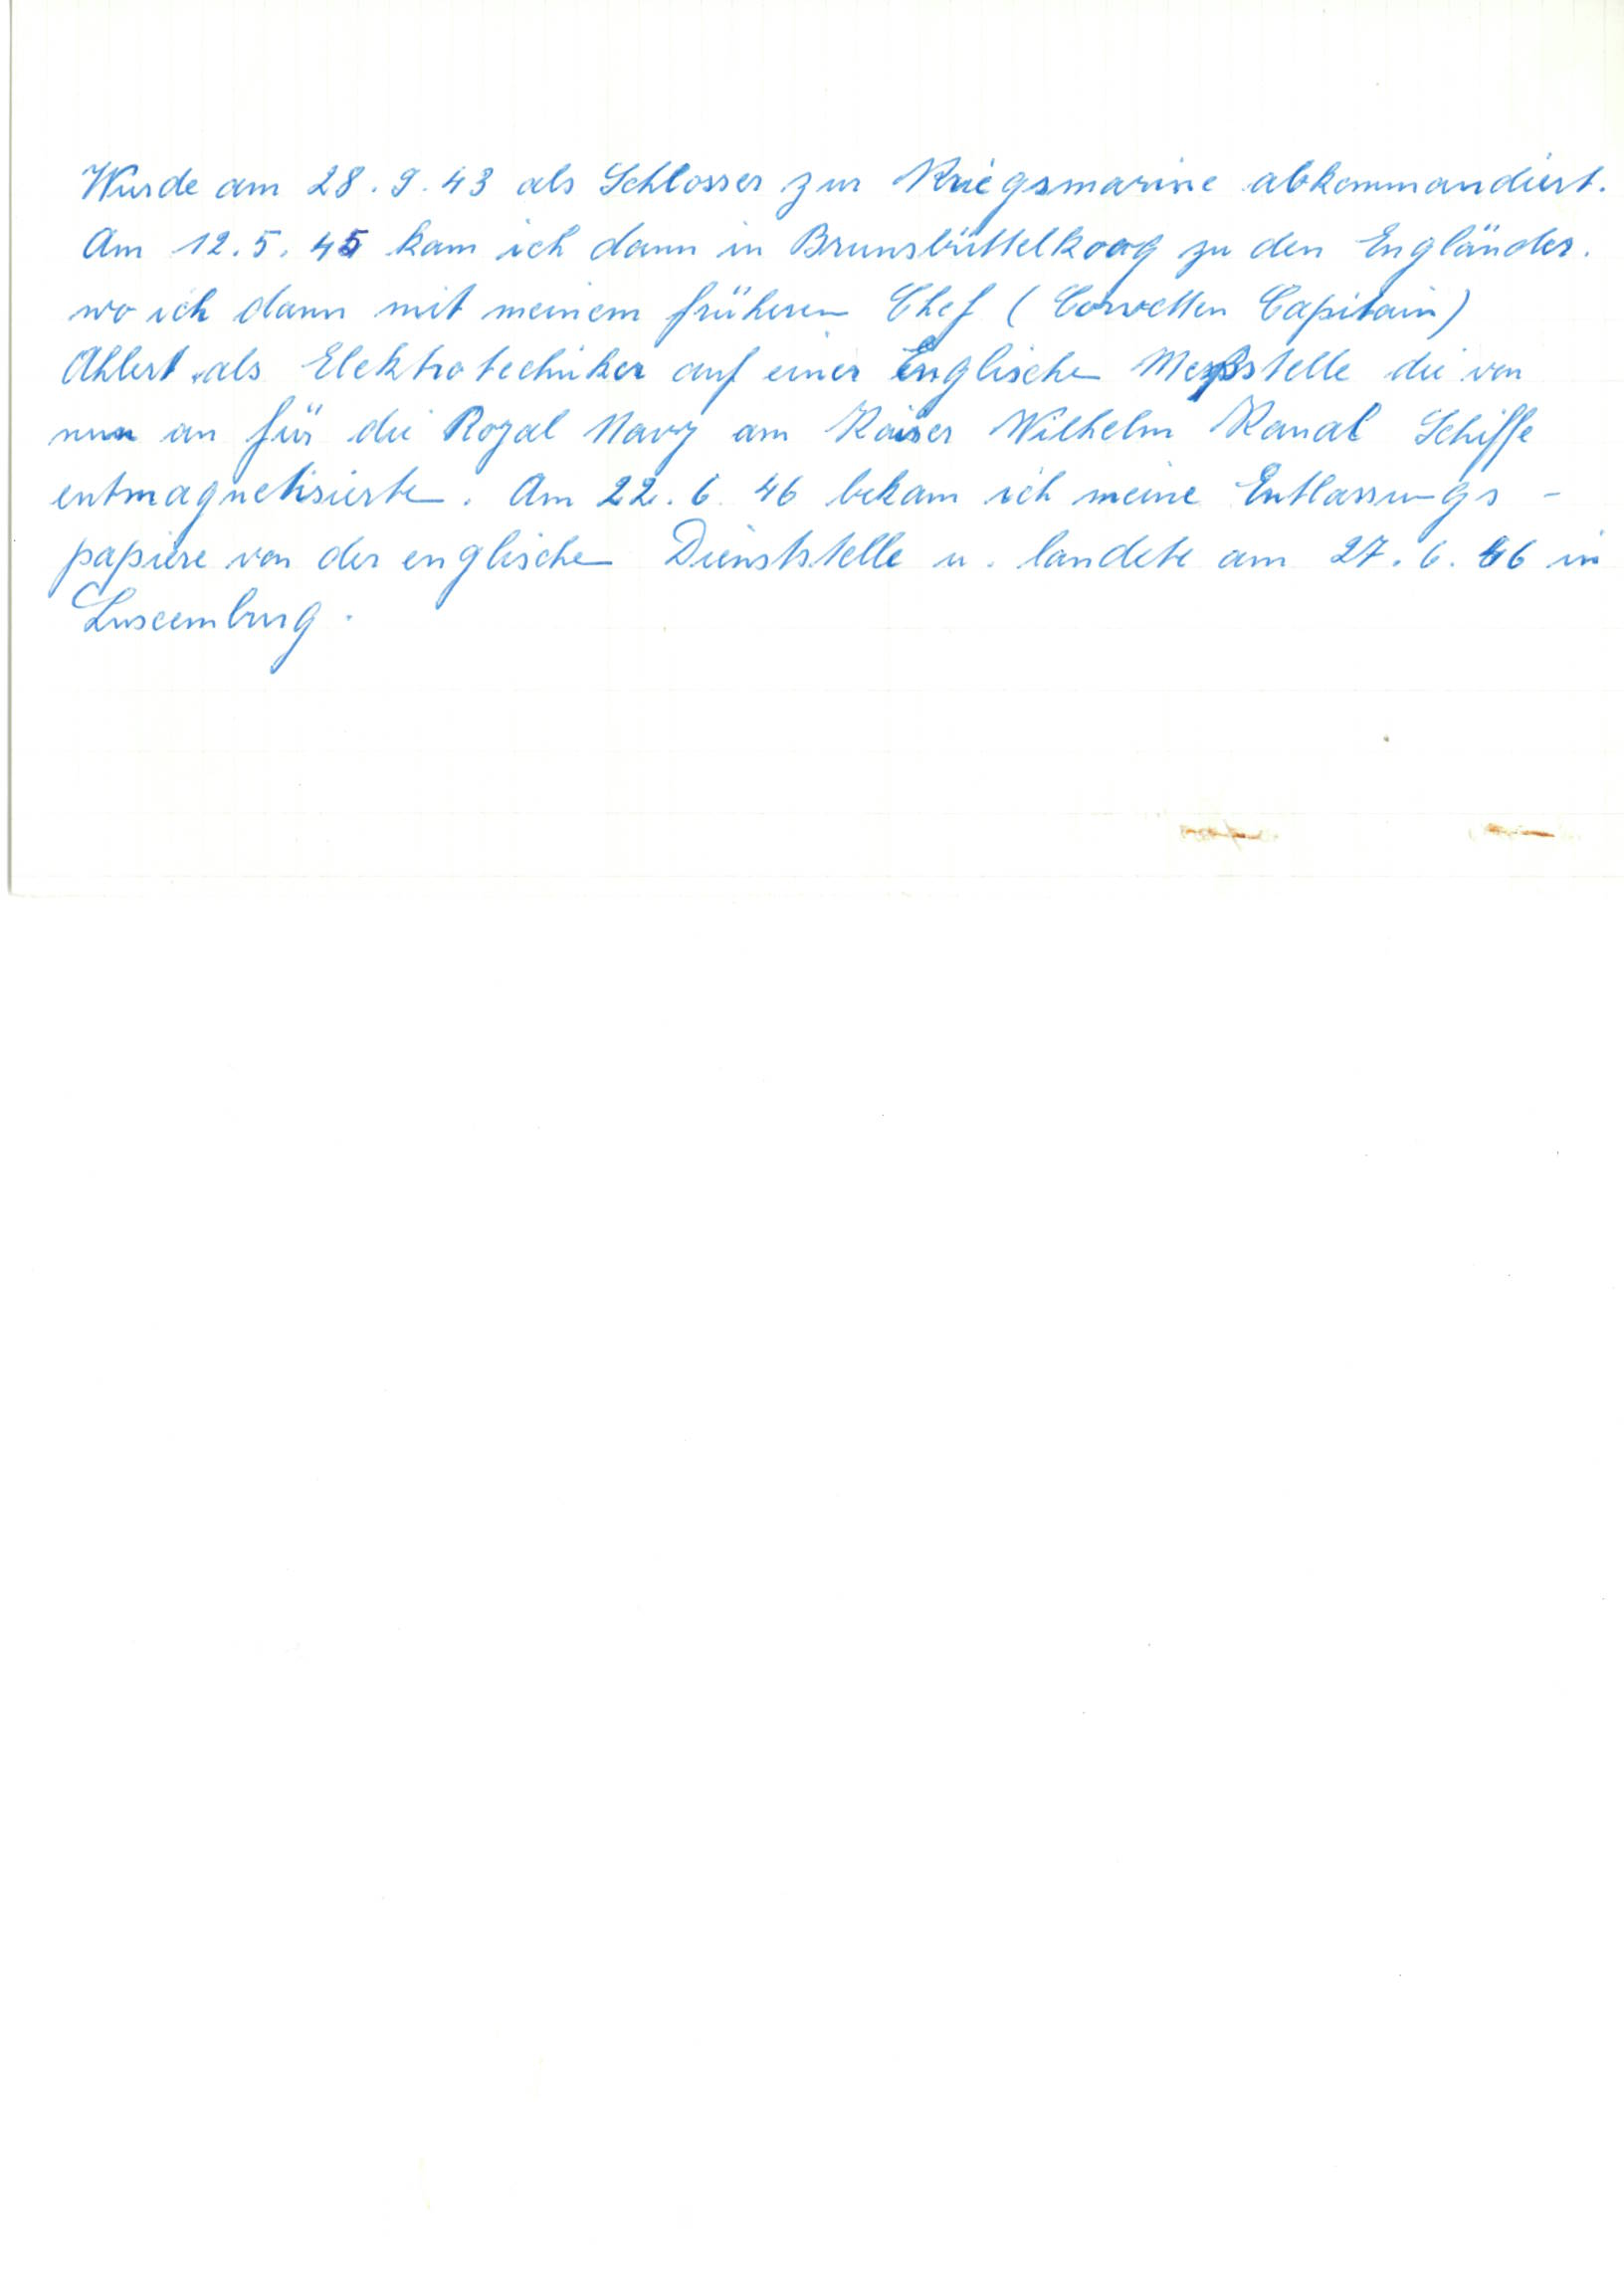 Wurde am 28. 9. 43 als Schlosser zur Kriegsmarine abkommandiert.
Am 12. 5. 45 kam ich dann in Brunsbüttelkoog zu den Engländer.
wo ich dann mit meinem früheren Chef (Corvetten Capitain)
Ahlert als Elektrotechniker auf einer Englischen Meßstelle die von
nun an für die Royal Navy am Kaiser Wilhelm Kanal Schiffe
entmagnetisierte. Am 22. 6. 46 bekam ich meine Entlassungs -
papiere von der englischen Dienststelle u. landete am 27. 6. 46 in
Luxemburg.